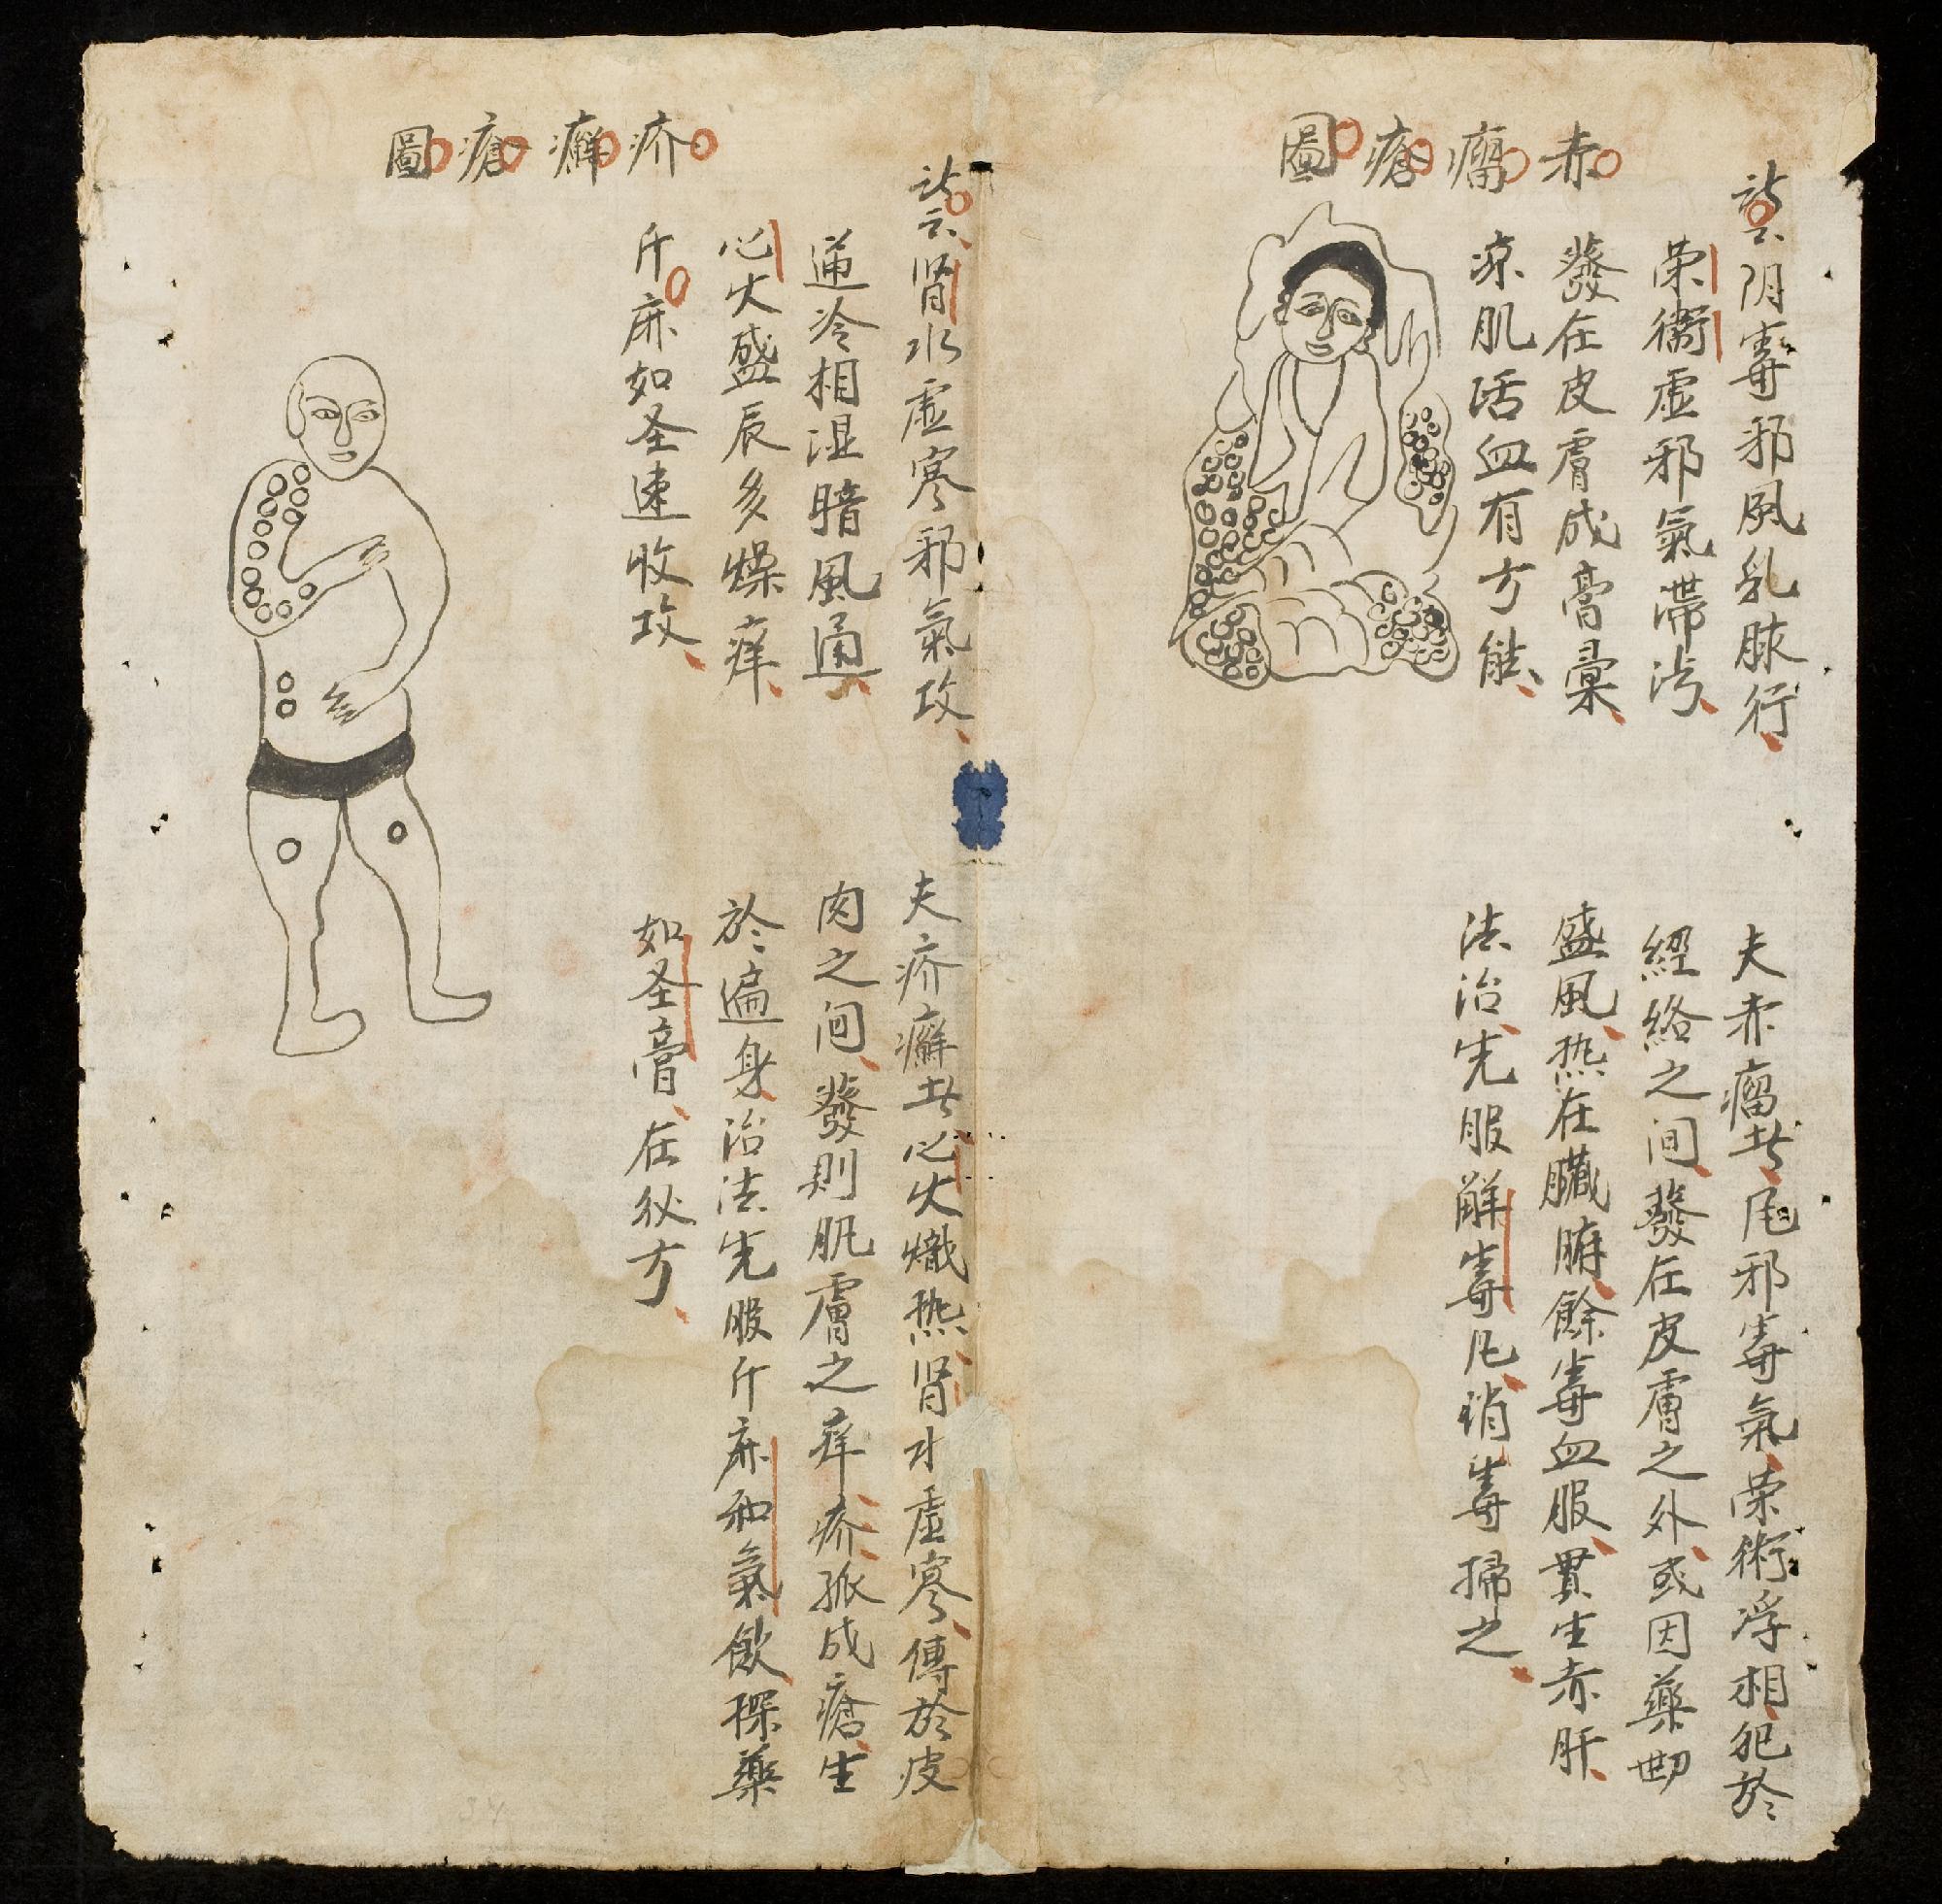 赤瘤瘡圖
詩云阴毒邪風乳脉行
荣衛虚邪氣滞
發在皮膚成膏
凉肌活血有方能
夫赤瘤者邪毒氣荣術浮相犯於
經络之间發在皮膚之外或因藥
盛風热在臟腑餘毒血服貫生赤肝
法治先服解毒凡消毒掃之
疥癬瘡圖
詩云肾水虚寒邪氣攻
逼冷相湿暗風通
心火盛辰多燥痒
斤麻如圣速收攻
夫疥癬者心火熾热肾水虚寒傳於皮
肉之间發則肌膚之痒疥成瘡生
於遍身治法先服斤麻和氣飲搽藥
如圣膏在秘方